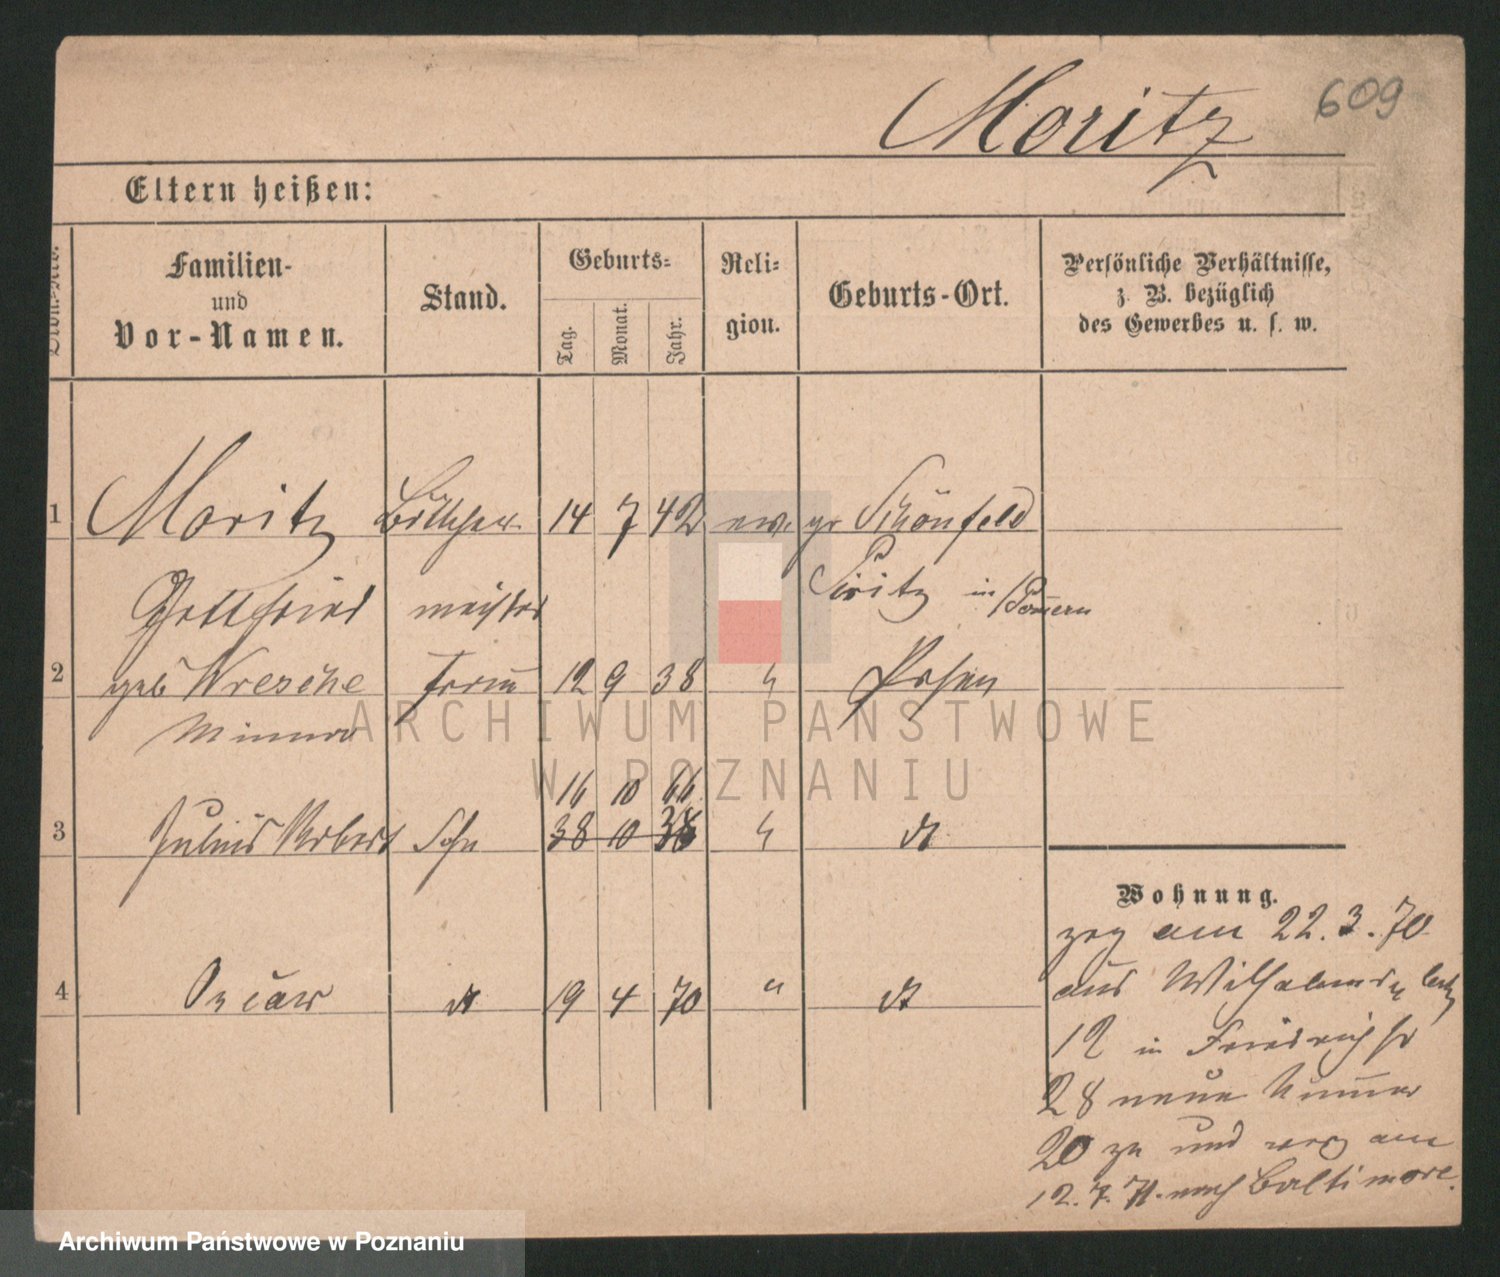 Moritz 609
Eltern heißen:
Familien- und Vor-Namen.
Stand.
Geburts-
Tag. Monat. Jahr.
Reli-gion.
Geburts-Ort.
Persönliche Verhältnisse,
z. B. bezüglich
des Gewerbes u. s. w.
1 Moritz Böttcher 14 7 42 ev. gr Schönfeld
Gottfried meister Piritz in Pom̄ern
2 geb Wresche Frau 12 9 38 " Posen
Minna
16 10 66
3 Julius Robert Sohn 38 10 38 " dt
4 Oscar dt 19 4 70 " dt
Wohnung.
zog am 22.3.70
aus Wilhelmspl
12 in Friedrichstr
28 neue Num̄er
20 zu und verz am
12.7.71. nach Baltimore.
ARCHIWUM PAŃSTWOWE
W POZNANIU
Archiwum Państwowe w Poznaniu